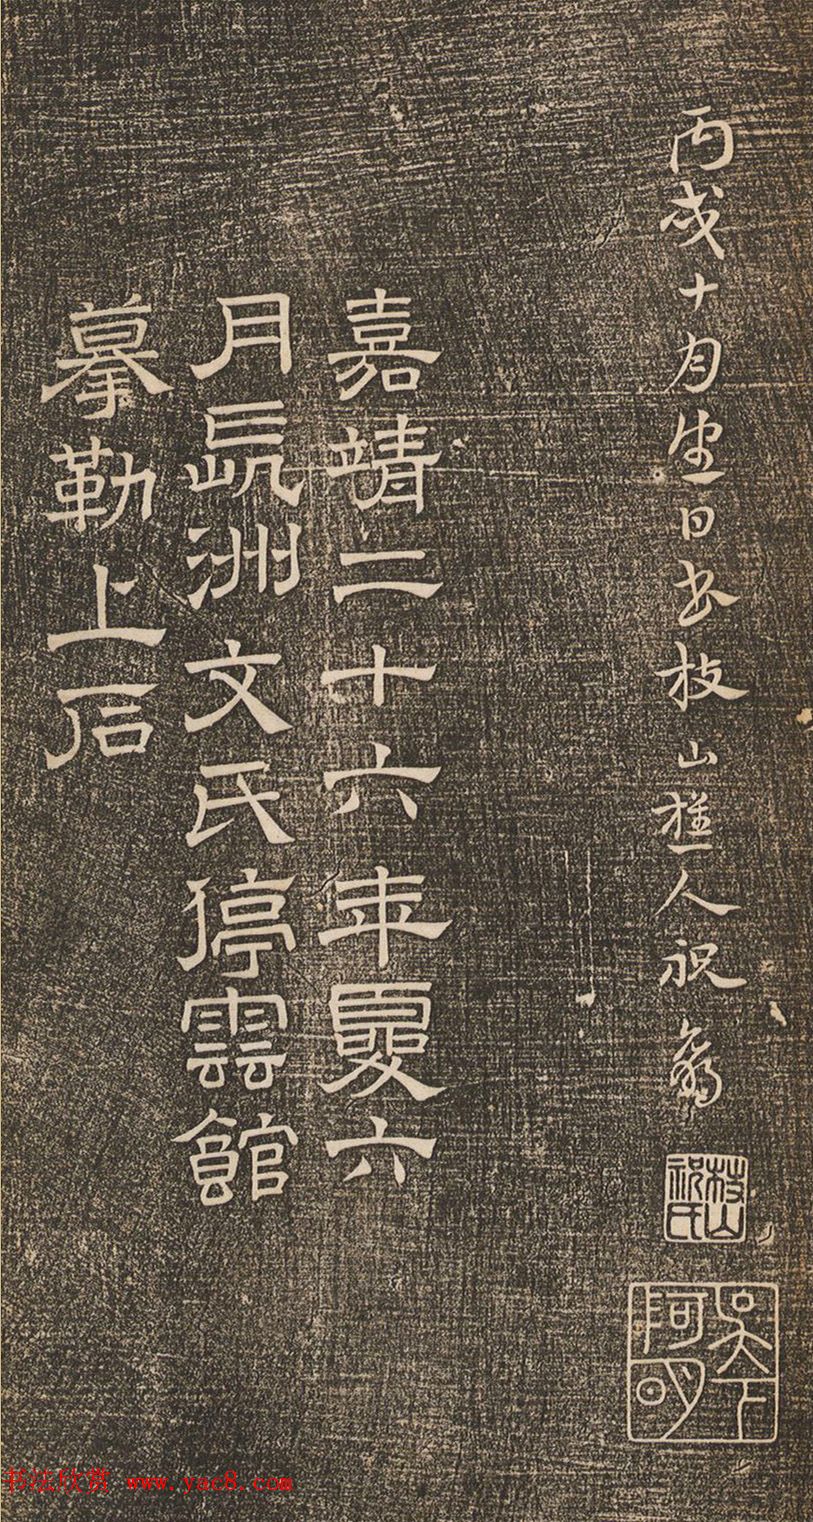 丙戌十月生日書枝山樵人祝翁
枝山祝氏
吳下阿明
嘉靖二十六年夏六
月長洲文氏停雲館
摹勒上石
书法欣赏 www.yac8.com